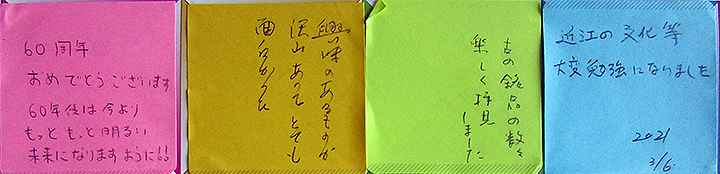 60周年
おめでとうございます
60年後は今より
もっともっと明るい
未来になりますように!!
興味のあるものが
沢山あってとても
面白かった
古の銘品の数々
楽しく拝見
しました
近江の文化等
大変勉強になりました
2021
3/6